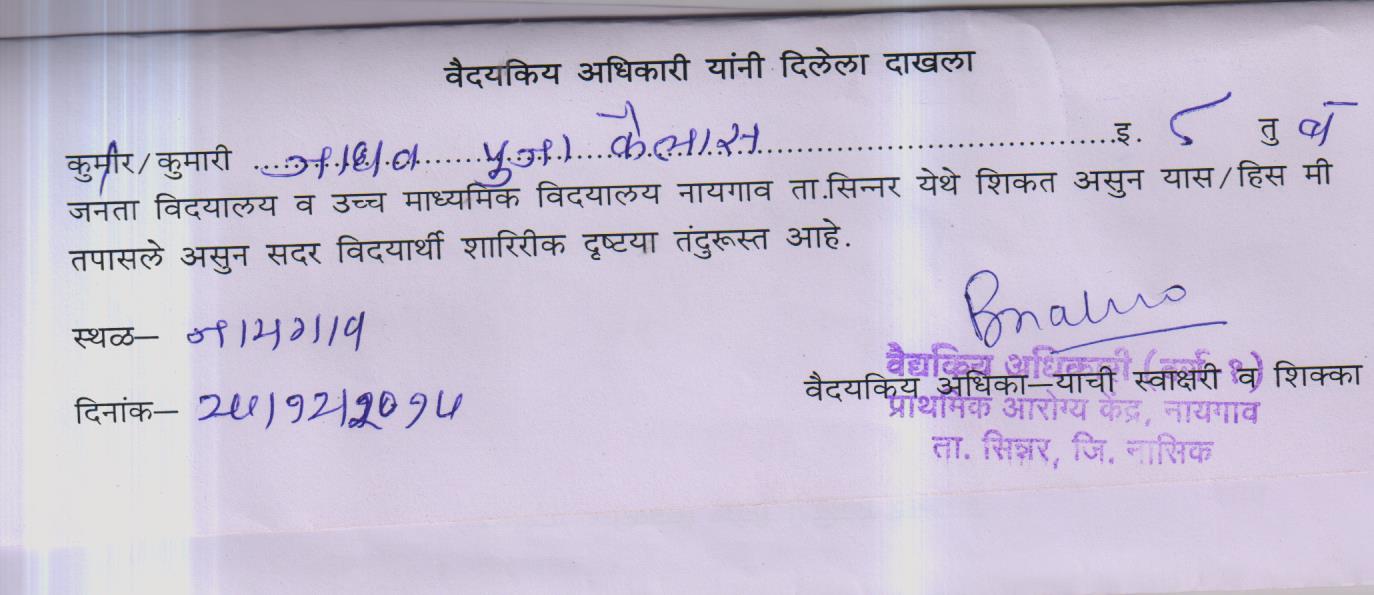 वैदयकिय अधिकारी यांनी दिलेला दाखला
कुमार/कुमारी ....जाधव पुजा कैलास....इ. ८ तु ब
जनता विदयालय व उच्च माध्यमिक विदयालय नायगाव ता.सिन्नर येथे शिकत असुन यास/हिस मी
तपासले असुन सदर विदयार्थी शारिरीक दृष्टया तंदुरूस्त आहे.
स्थळ— नायगाव
दिनांक— २४/१२/२०१५
वैद्यकिय अधिकारी (वर्ग १)
वैदयकिय अधिका—याची स्वाक्षरी व शिक्का
प्राथमिक आरोग्य केंद्र, नायगाव
ता. सिन्नर, जि. नासिक